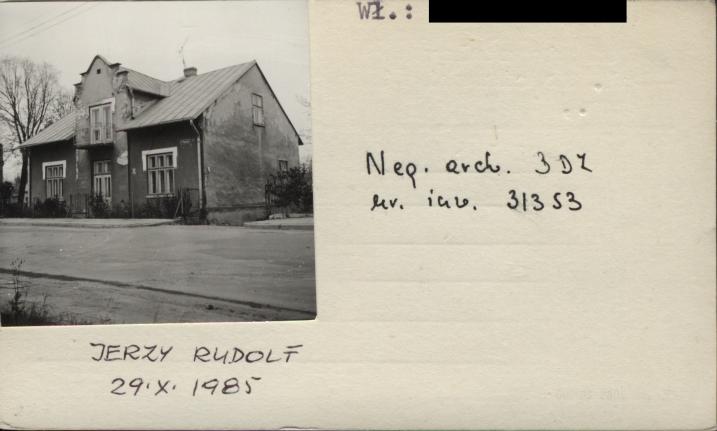 Wł.:
Neg. arch. 3DZ
nr. inw. 31353
JERZY RUDOLF
29.X.1985